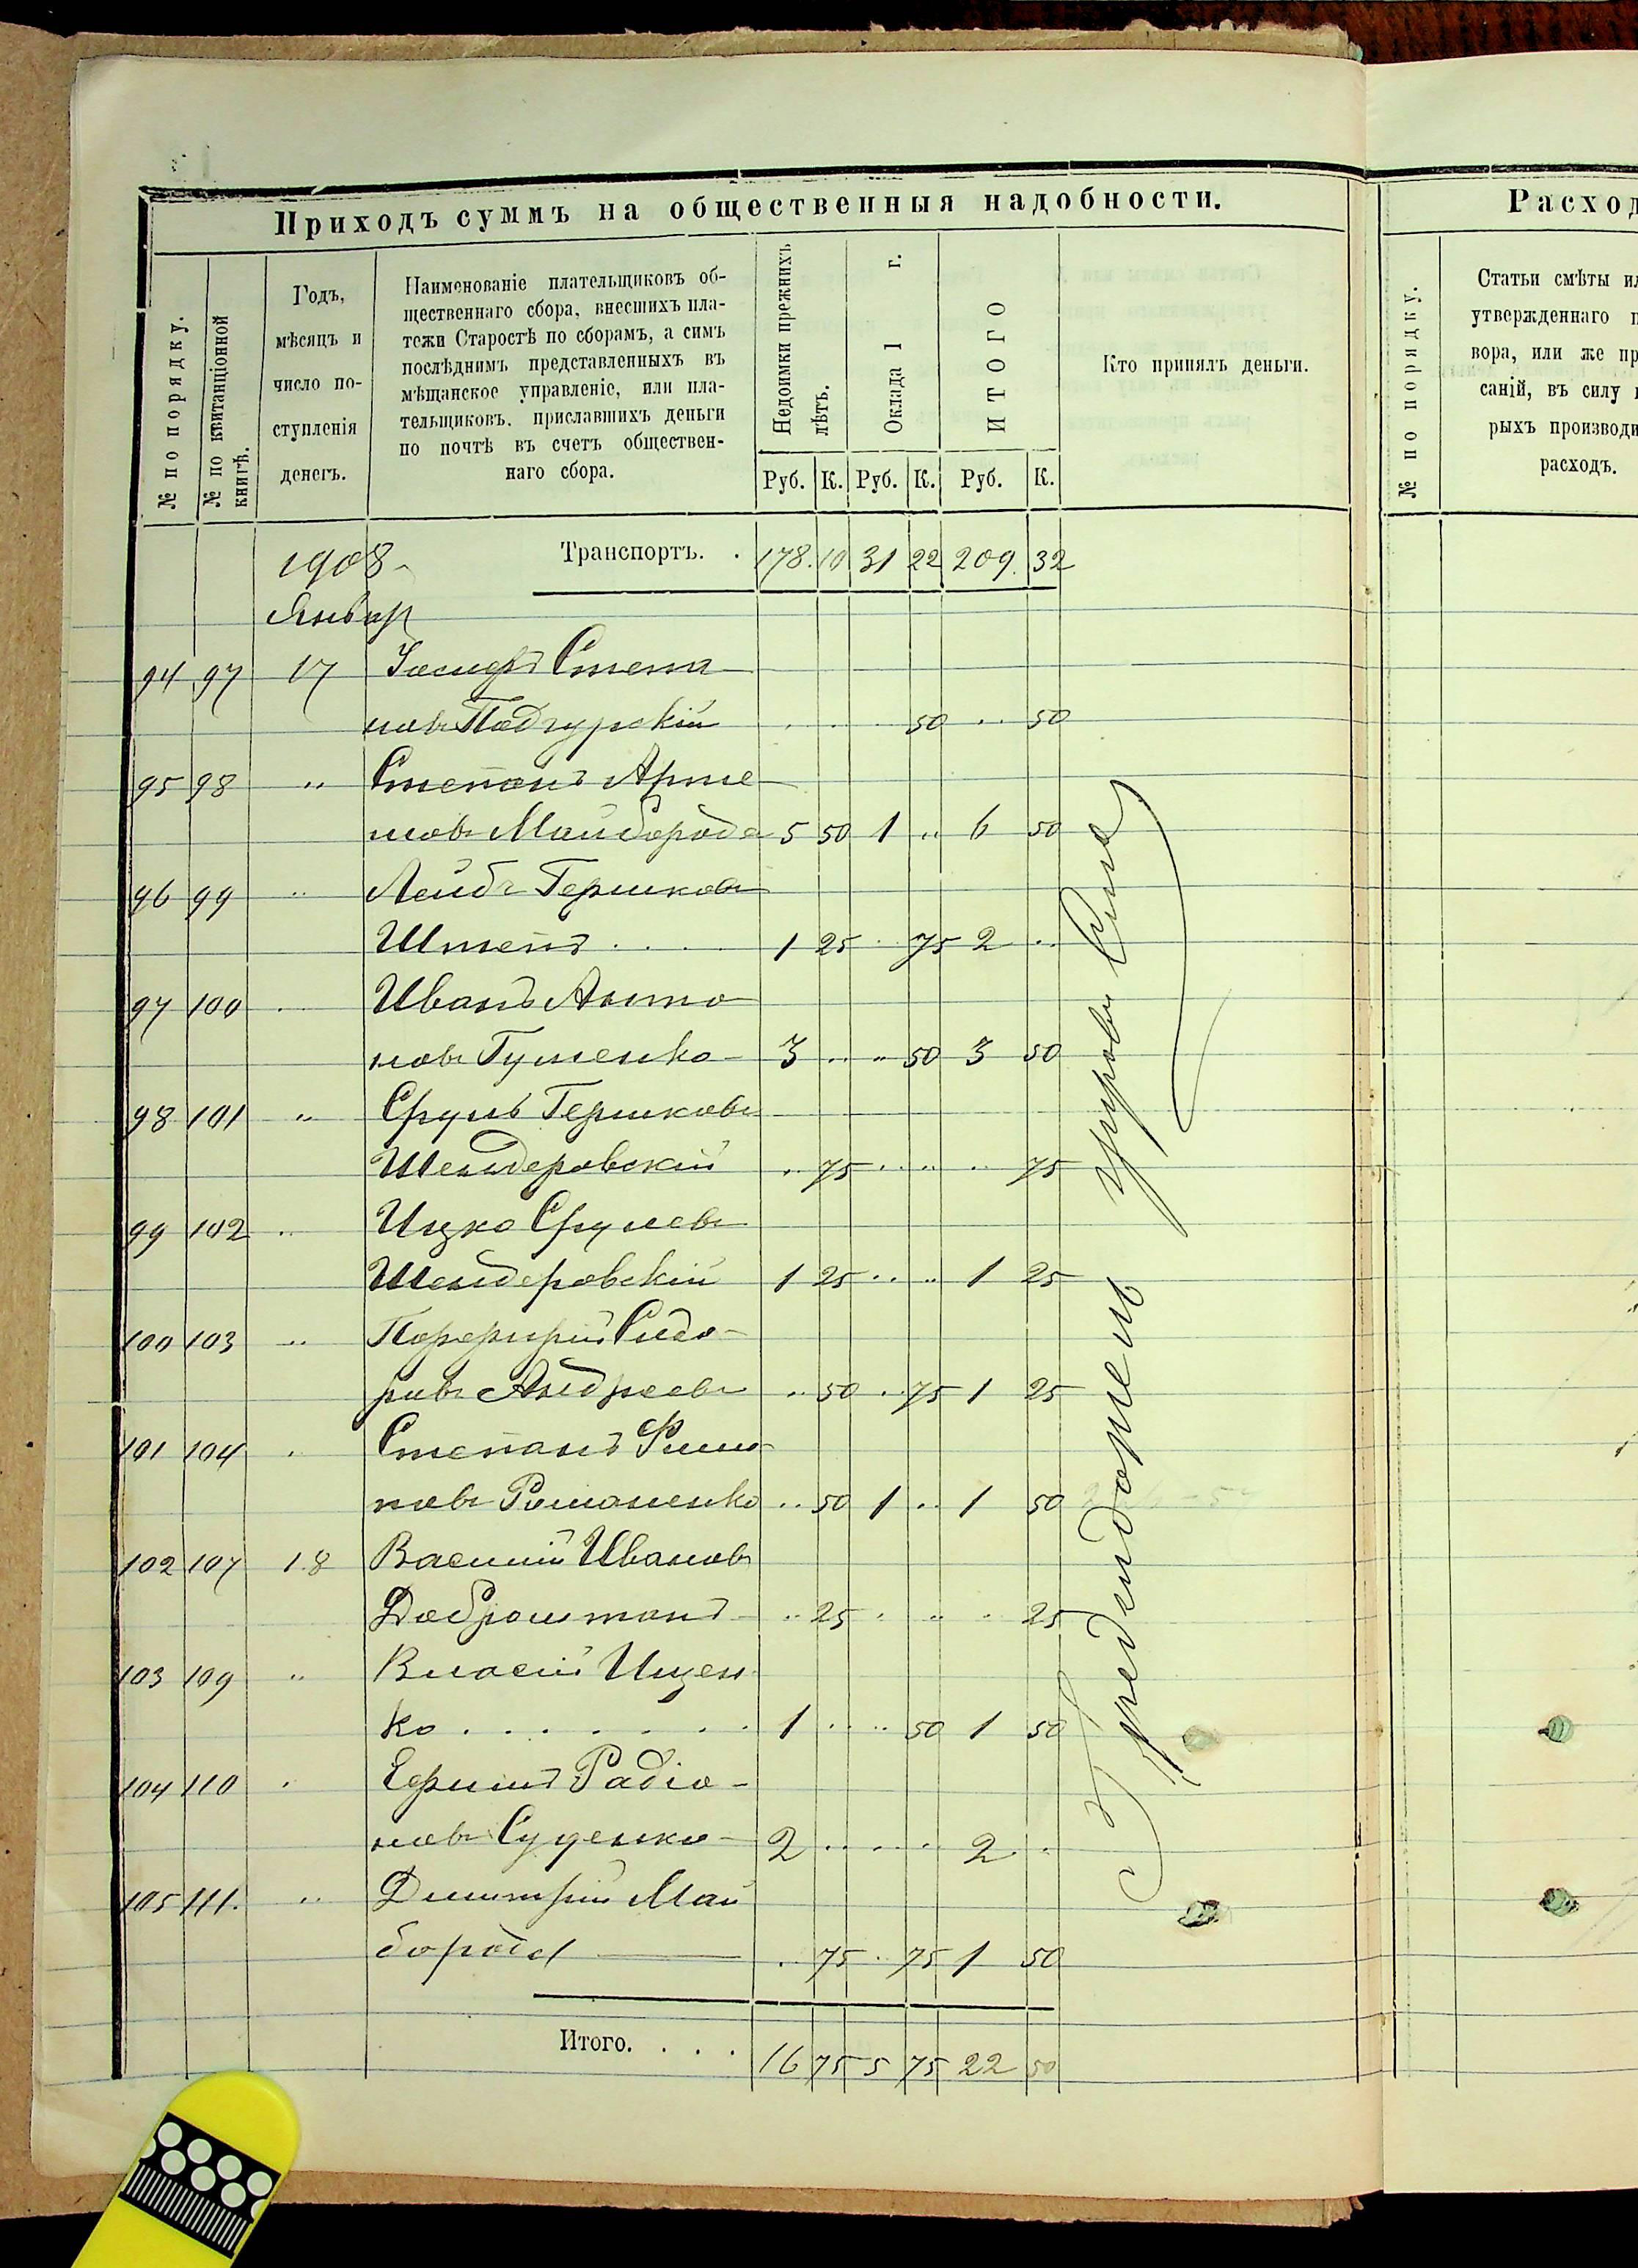 Приходъ суммъ на общественныя надобности.
№ по порядку.
№ по квитанціонной
книгѣ.
Годъ,
мѣсяцъ и
число по-
ступленія
денегъ.
Наименованіе плательщиковъ об-
щественнаго сбора, внесшихъ пла-
тежи Старостѣ по сборамъ, а симъ
послѣднимъ представленныхъ въ
мѣщанское управленіе, или пла-
тельщиковъ, приславшихъ деньги
по почтѣ въ счетъ обществен-
наго сбора.
Недоимки прежнихъ
лѣтъ.
Оклада 1 г.
ИТОГО
Кто принялъ деньги.
Руб. К. Руб. К. Руб. К.
1908 Транспортъ. . 178. 10 31 22 209. 32
Январ
94 97 17 Іосифъ Степа
новъ Подгурскій . . . 50 .. 50
95 98 " Степанъ Арте
мовъ Майборода 5 50 1 .. 6 50
96 99 " Лейбъ Гершковъ
Штепъ . . . . 1 25 . 75 2 ..
97 100 .. Иванъ Анто
новъ Гуменко 3 .. .. 50 3 50
98 101 " Сруль Гершковъ
Шендеровскій .. 75 .. .. .. 75
99 102 .. Ицко Срулевъ
Шендеровскій 1 25 .. .. 1 25
100 103 .. Порфирій Сидо-
ровъ Андреевъ .. 50 .. 75 1 25
101 104 . Степанъ
Романенко .. 50 1 .. 1 50
102 107 18 Василій Ивановъ
Доброштанъ .. 25 . .. . 25
103 109 " Власій Ищен
ко . . . . . . . 1 .. .. 50 1 50
104 110 . Ефимъ Радіо-
новъ Суденко 2 .. .. .. 2 ..
105 111. " Дмитрій Май
борода .. 75 . 75 1 50
Итого. . . . 16 75 5 75 22 50
Расход
№ по порядку.
Статьи смѣты ил
утвержденнаго п
вора, или же пр
саній, въ силу к
рыхъ производи
расходъ.